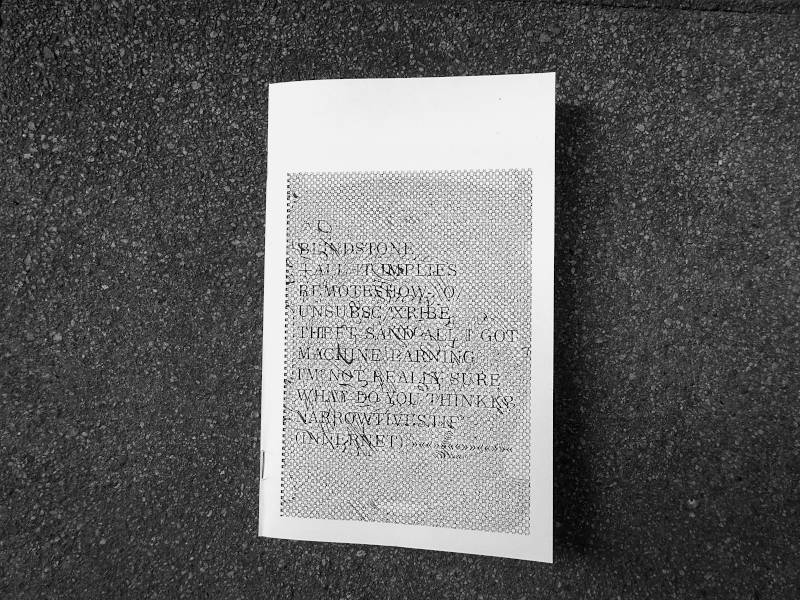 BLINDSTONE
+ ALL IT IMPLIES
REMOTESHOW
UNSUBSC/XRIBE
THEFT SAND ALL I GOT
MACHINE EARNING
I'M NOT REALLY SURE
WHAT DO YOU THINKKS
NARROWTIVES.LIF
(INNERNET)